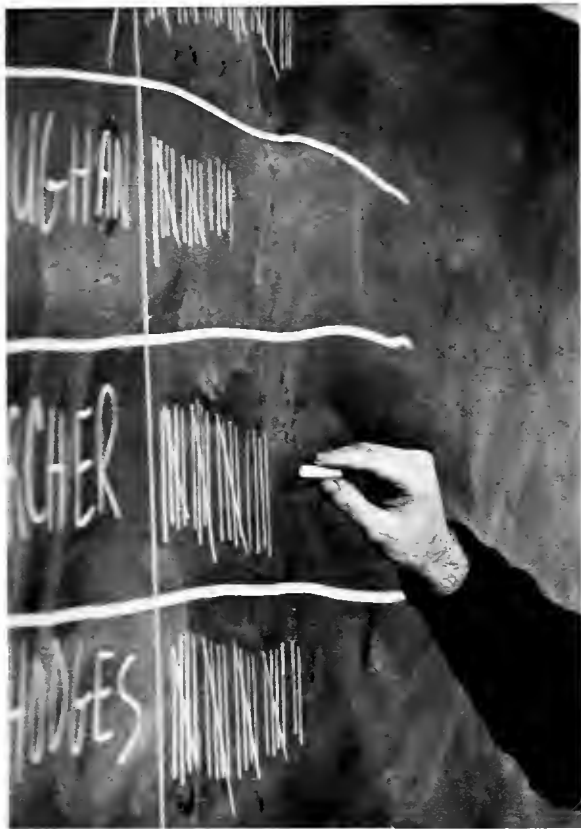 UGHAN
CHER
UDGES